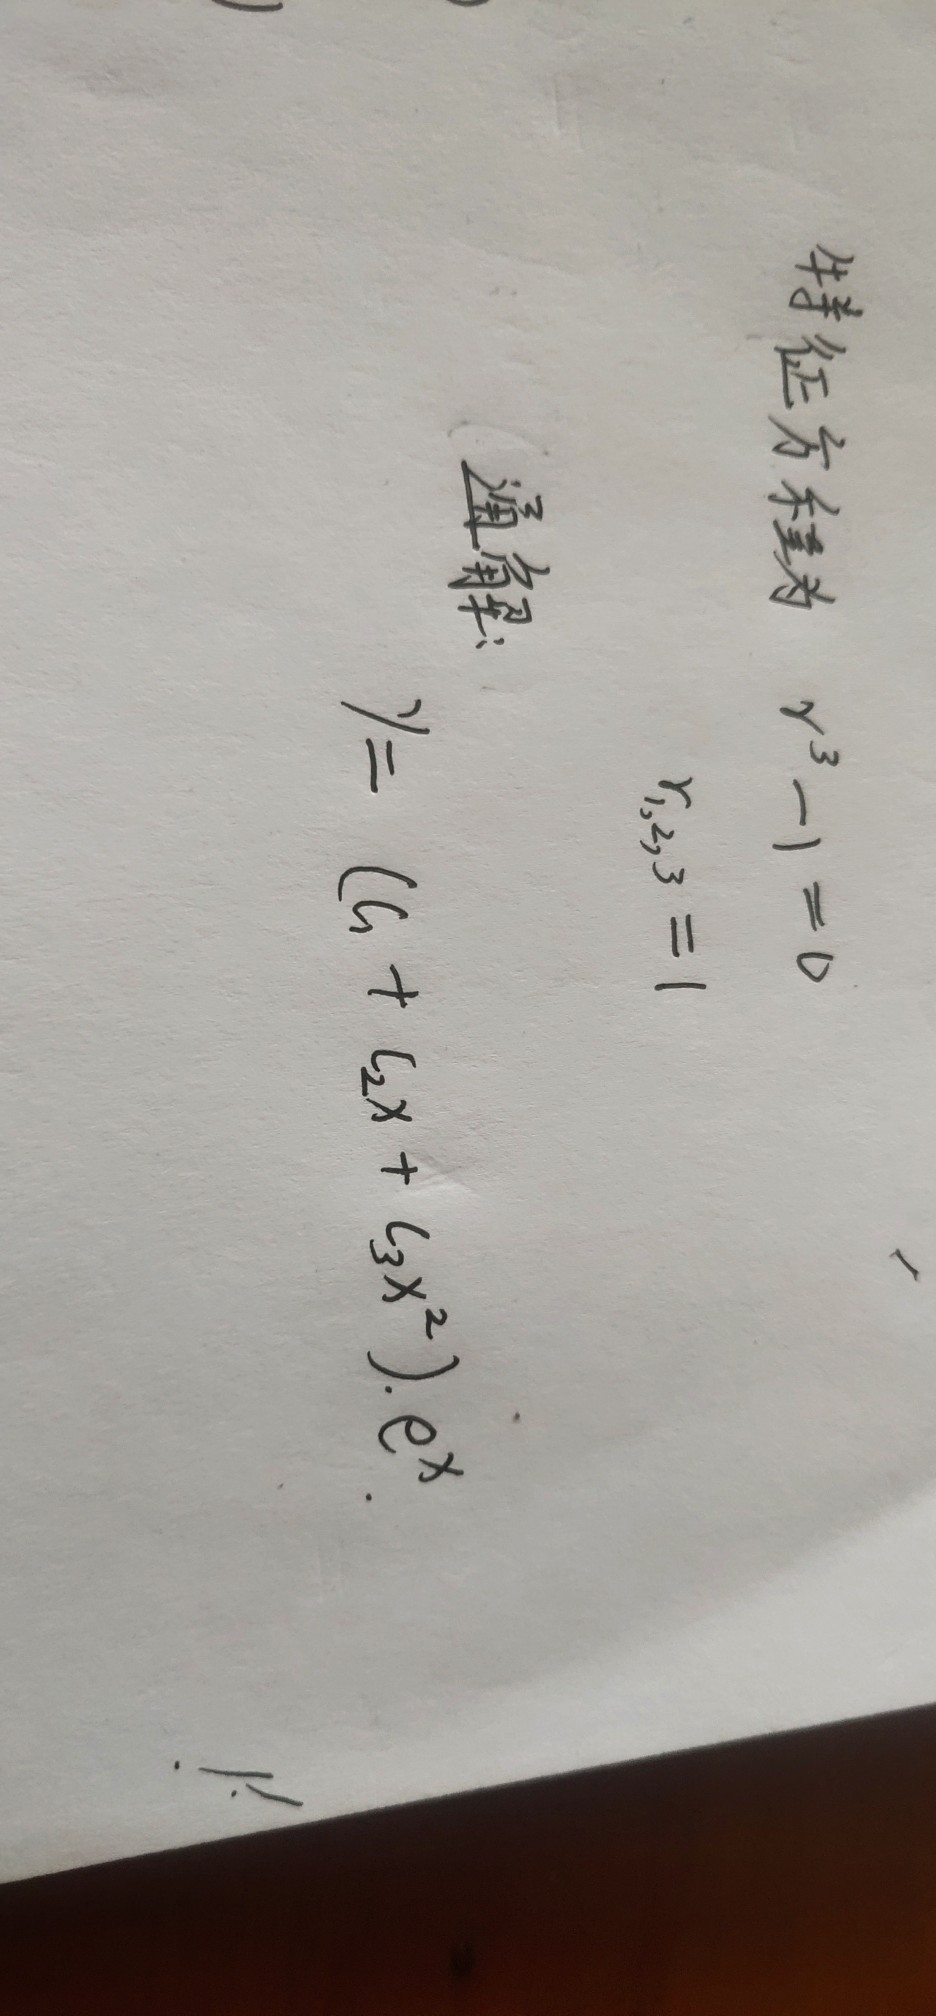 特征方程为 r³-1=0
r₁,₂,₃=1
通解:
y= (C₁ + C₂x + C₃x²).eˣ.